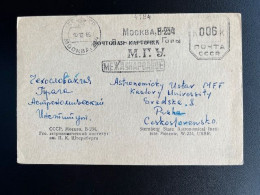 1784
Москва, В-234
006к
ПОЧТА
СССР
ПОЧТОВАЯ КАРТОЧКА
М.Г.У.
МЕЖДУНАРОДНОЕ
МОСКВА
Чехословакия
Прага
Астрономический
Институт.
Astronomický Ustav MFF
Karlovy University
Švedska 8
Praha
Československo
СССР, Москва, В-234,
Гос. астрономический институт
им. П. К. Штернберга
Sternberg State Astronomical Insti-
tute, Moscow, W-234, USSR